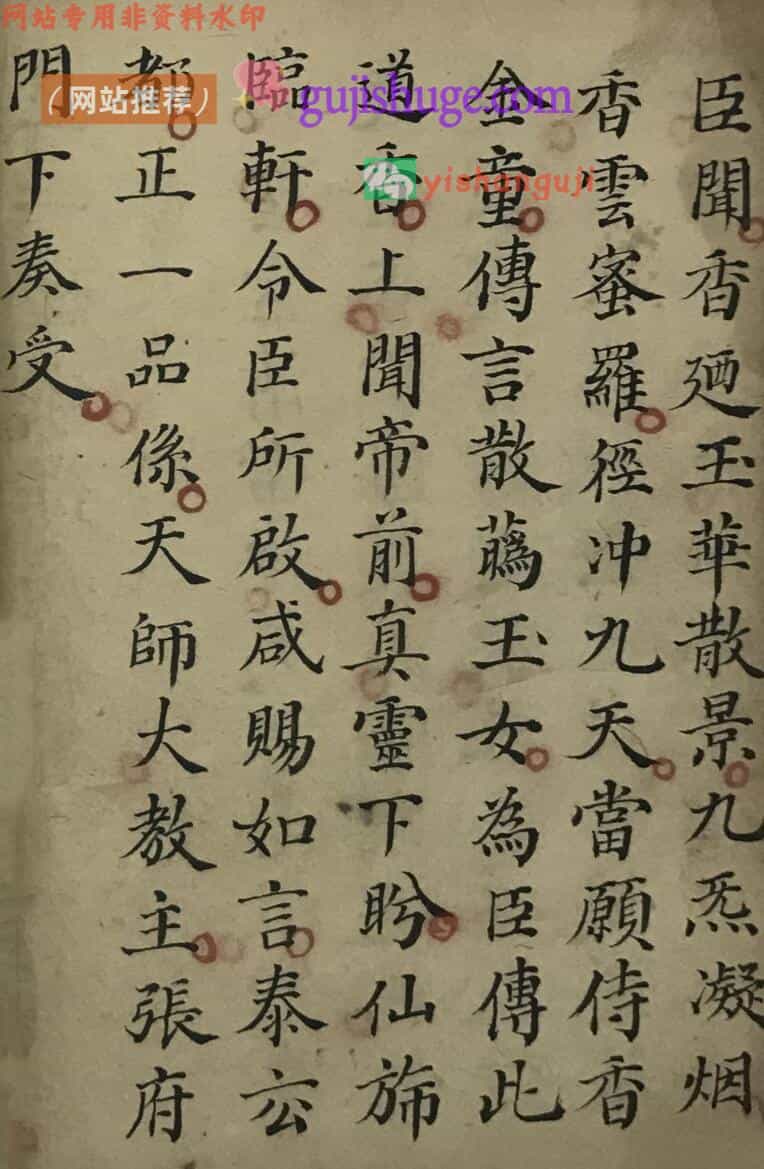 臣聞香廼玉華散景九炁凝烟
香雲蜜羅徑冲九天當願侍香
金童傳言散蘤玉女為臣傳此
道香上聞帝前真靈下盻仙斾
臨軒令臣所啟咸賜如言泰玄
都正一品係天師大教主張府
門下奏受
网站专用非资料水印
（网站推荐）
gujishuge.com
yishanguji